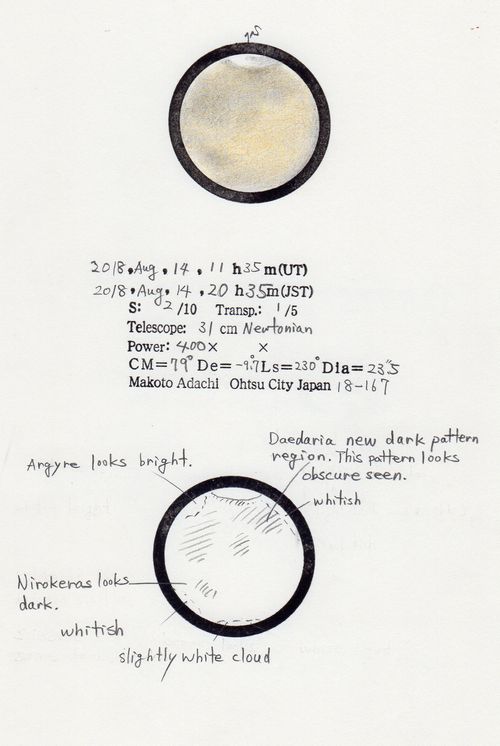 2018.Aug.14.11 h35m(UT)
2018.Aug.14.20 h35m(JST)
S: 2/10 Transp.: 1/5
Telescope: 31 cm Newtonian
Power: 400× ×
CM=79° De=-9.7° Ls=230° Dia=23".5
Makoto Adachi Ohtsu City Japan 18-167
Daedaria new dark pattern
region. This pattern looks
obscure seen.
Argyre looks bright.
whitish
Nirokeras looks
dark.
whitish
slightly white cloud